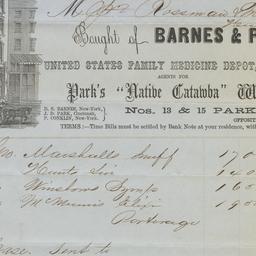 M
Bought of BARNES & P
UNITED STATES FAMILY MEDICINE DEPOT,
AGENTS FOR
Park's "Native Catawba" W
D. S. BARNES, New-York,
J. D. PARK, Cincinnati,
P. CONKLIN, New-York.
Nos. 13 & 15 PARK
OPPOSIT
TERMS:—Time Bills must be settled by Bank Note at your residence, with
Marshalls Snuff 170
Hunts Lin 140
Winslows Syrup 160
McMunns Elixr 190
Porterage
Sent to